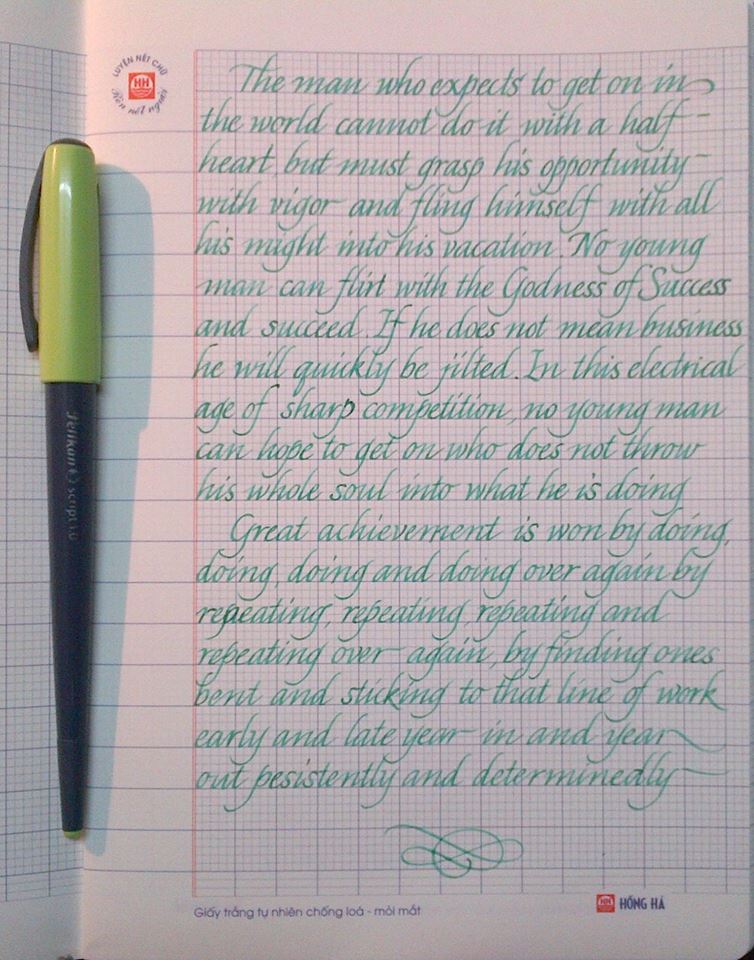 LUYỆN NÉT CHỮ
HH
Rèn nết người
The man who expects to get on in
the world cannot do it with a half -
heart, but must grasp his opportunity
with vigor and fling himself with all
his might into his vacation. No young
man can flirt with the Godness of Success
and succeed. If he does not mean business
he will quickly be jilted. In this electrical
age of sharp competition no young man
can hope to get on who does not throw
his whole soul into what he is doing
Great achievement is won by doing,
doing, doing and doing over again by
repeating, repeating, repeating and
repeating over again, by finding ones
bent and sticking to that line of work
early and late year in and year
out pesistently and determinedly
Pelikan script 1.0
Giấy trắng tự nhiên chống loá - mỏi mắt
HH HỒNG HÀ